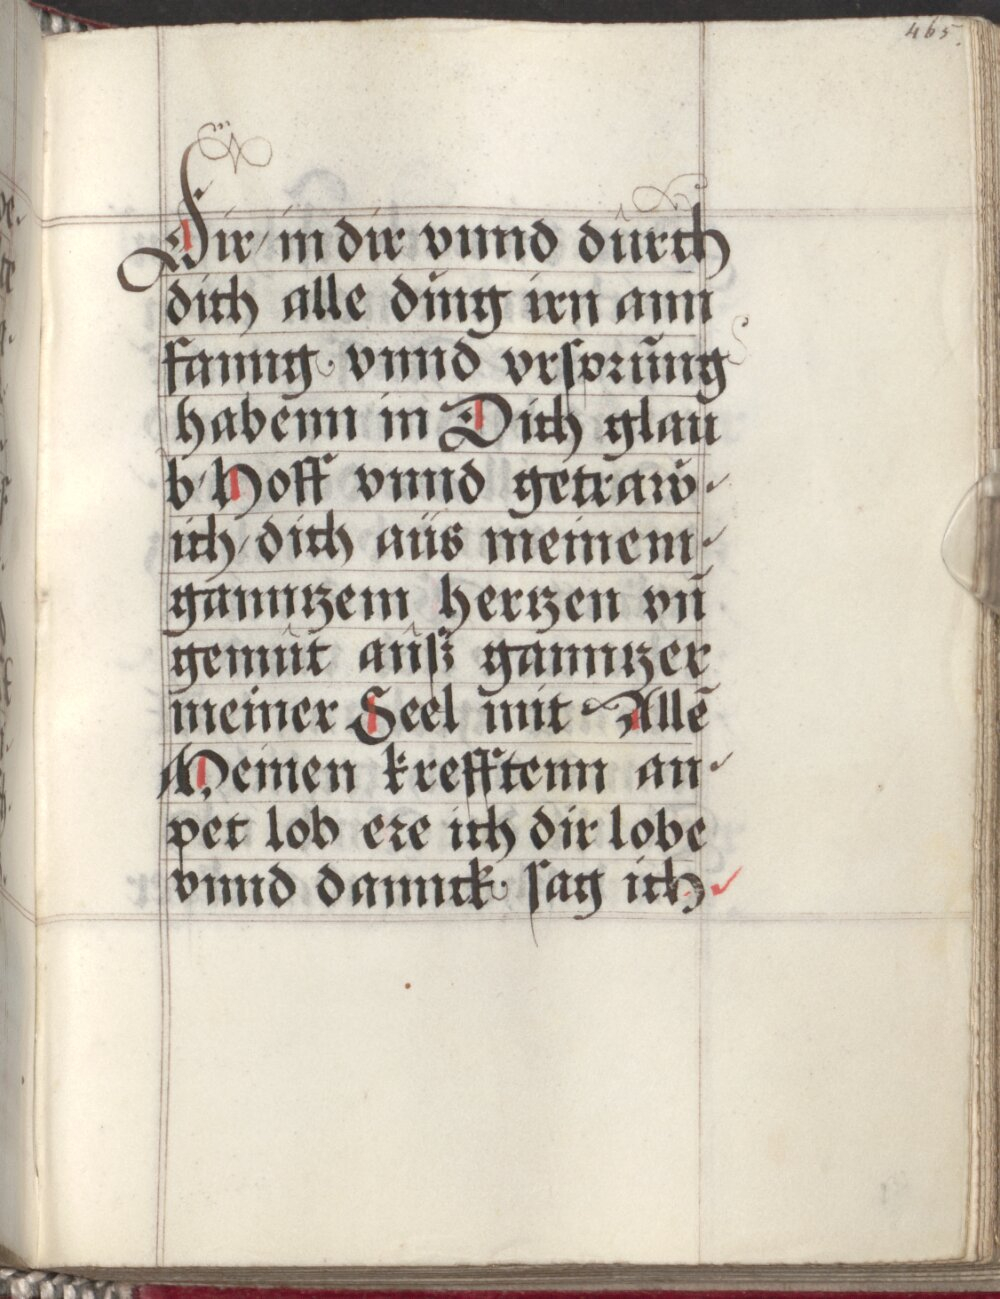 465.
Dir / in dir vnnd dürch
dich alle ding irn ann
fanng · vnnd vrsprüng
habenn in Dich glau
b / Hoff vnnd getraw
ich / dich aüs meinem
ganntzem hertzen vn̄
gemüt aüß ganntzer
meiner Seel mit Allē
Meinen krefftenn an
pet lob ere ich dir lobe
vnnd dannck · sag ich